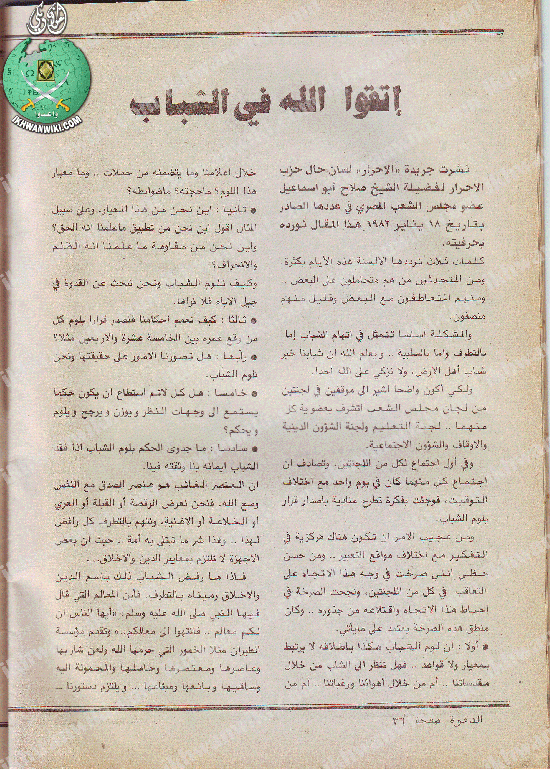 إخوان ويكي
IKHWANWIKI.COM
إتقوا الله في الشباب
نشرت جريدة «الاحرار» لسان حال حزب
الاحرار لفضيلة الشيخ صلاح أبو اسماعيل
عضو مجلس الشعب المصري في عددها الصادر
بتاريخ ١٨ يناير ١٩٨٢ هذا المقال نورده
بحرفيته.
كلمات ثلاث ترددها الالسنة هذه الأيام بكثرة
ومن المتحدثين من هم متحاملون على البعض ..
ومنهم المتعاطفون مع البعض وقليل منهم
منصفون.
والمشكلة اساسا تتمثل في اتهام الشباب إما
بالتطرف وأما بالسلبية .. ويعلم الله أن شبابنا خير
شباب أهل الأرض، ولا نزكي على الله احدا.
ولكي أكون واضحا أشير الى موقفين في لجنتين
من لجان مجلس الشعب اتشرف بعضوية كل
منهما .. لجنة التعليم ولجنة الشؤون الدينية
والاوقاف والشؤون الاجتماعية.
وفي أول اجتماع لكل من اللجنتين، وتصادف ان
اجتماع كل منهما كان في يوم واحد مع اختلاف
التوقيت، فوجئت بفكرة تطرح منادية بإصدار قرار
بلوم الشباب.
ومن عجيب الامر ان تكون هناك مركزية في
التفكير مع اختلاف مواقع التعبير .. ومن حسن
حظي انني صرخت في وجه هذا الاتجاه على
التعاقب في كل من اللجنتين، ونجحت الصرخة في
احباط هذا الاتجاه واقتلاعه من جذوره .. وكان
منطق هذه الصرخة يعتمد على مايأتي.
● أولا : ان لوم الشباب هكذا باطلاقه لا يرتبط
بمعيار ولا قواعد .. فهل ننظر الى الشباب من خلال
مقدساتنا .. أم من خلال أهوائنا ورغباتنا .. أم من
خلال اعلامنا وما يتضمنه من حملات .. وما معيار
هذا اللوم؟ ماحجته؟ ماضوابطه؟
● ثانيا : اين نحن من هذا المعيار، وعلى سبيل
المثال اقول اين نحن من تطبيق ماعلمنا انه الحق؟
واين نحن من مقاومة ما علمنا انه الظلم
والانحراف؟
وكيف نلوم الشباب ونحن نبحث عن القدوة في
جيل الآباء فلا نراها.
● ثالثا : كيف نعمم أحكامنا فنصدر قرارا بلوم كل
من رقع عمره بين الخامسة عشرة والاربعين مثلا؟
● رابعا : هل تصورنا الامور على حقيقتها ونحن
نلوم الشباب.
● خامسا : هل كل لائم استطاع ان يكون حكما
يستمع الى وجهات النظر ويوزن ويرجح ويلوم
ويحكم؟
● سادسا : ما جدوى الحكم بلوم الشباب اذا فقد
الشباب ايمانه بنا وثقته فينا.
ان العنصر الغائب هو عنصر الصدق مع النفس
ومع الله، فنحن نعرض الرقصة أو القبلة أو العري
أو الخلاعة أو الاغنية، ونتهم بالتطرف كل رافض
لهذا .. وهذا شر ما تبتلى به أمة .. حيث ان بعض
الاجهزة لا تلتزم بمعايير الدين والاخلاق..
فاذا ما رفض الشباب ذلك باسم الدين
والاخلاق وصفناه بالتطرف. فأين المعالم التي قال
فيها النبي صلى الله عليه وسلم، «أيها الناس ان
لكم معالم .. فانتهوا الى معالمكم..» وتقدم مؤسسة
الطيران مثلا الخمور التي حرمها الله ولعن شاربها
وعاصرها ومعتصرها وحاملها والمحمولة اليه
وساقيها وبائعها ومبتاعها .. ويلتزم دستورنا ..
الدعوة صفحة ٣٦